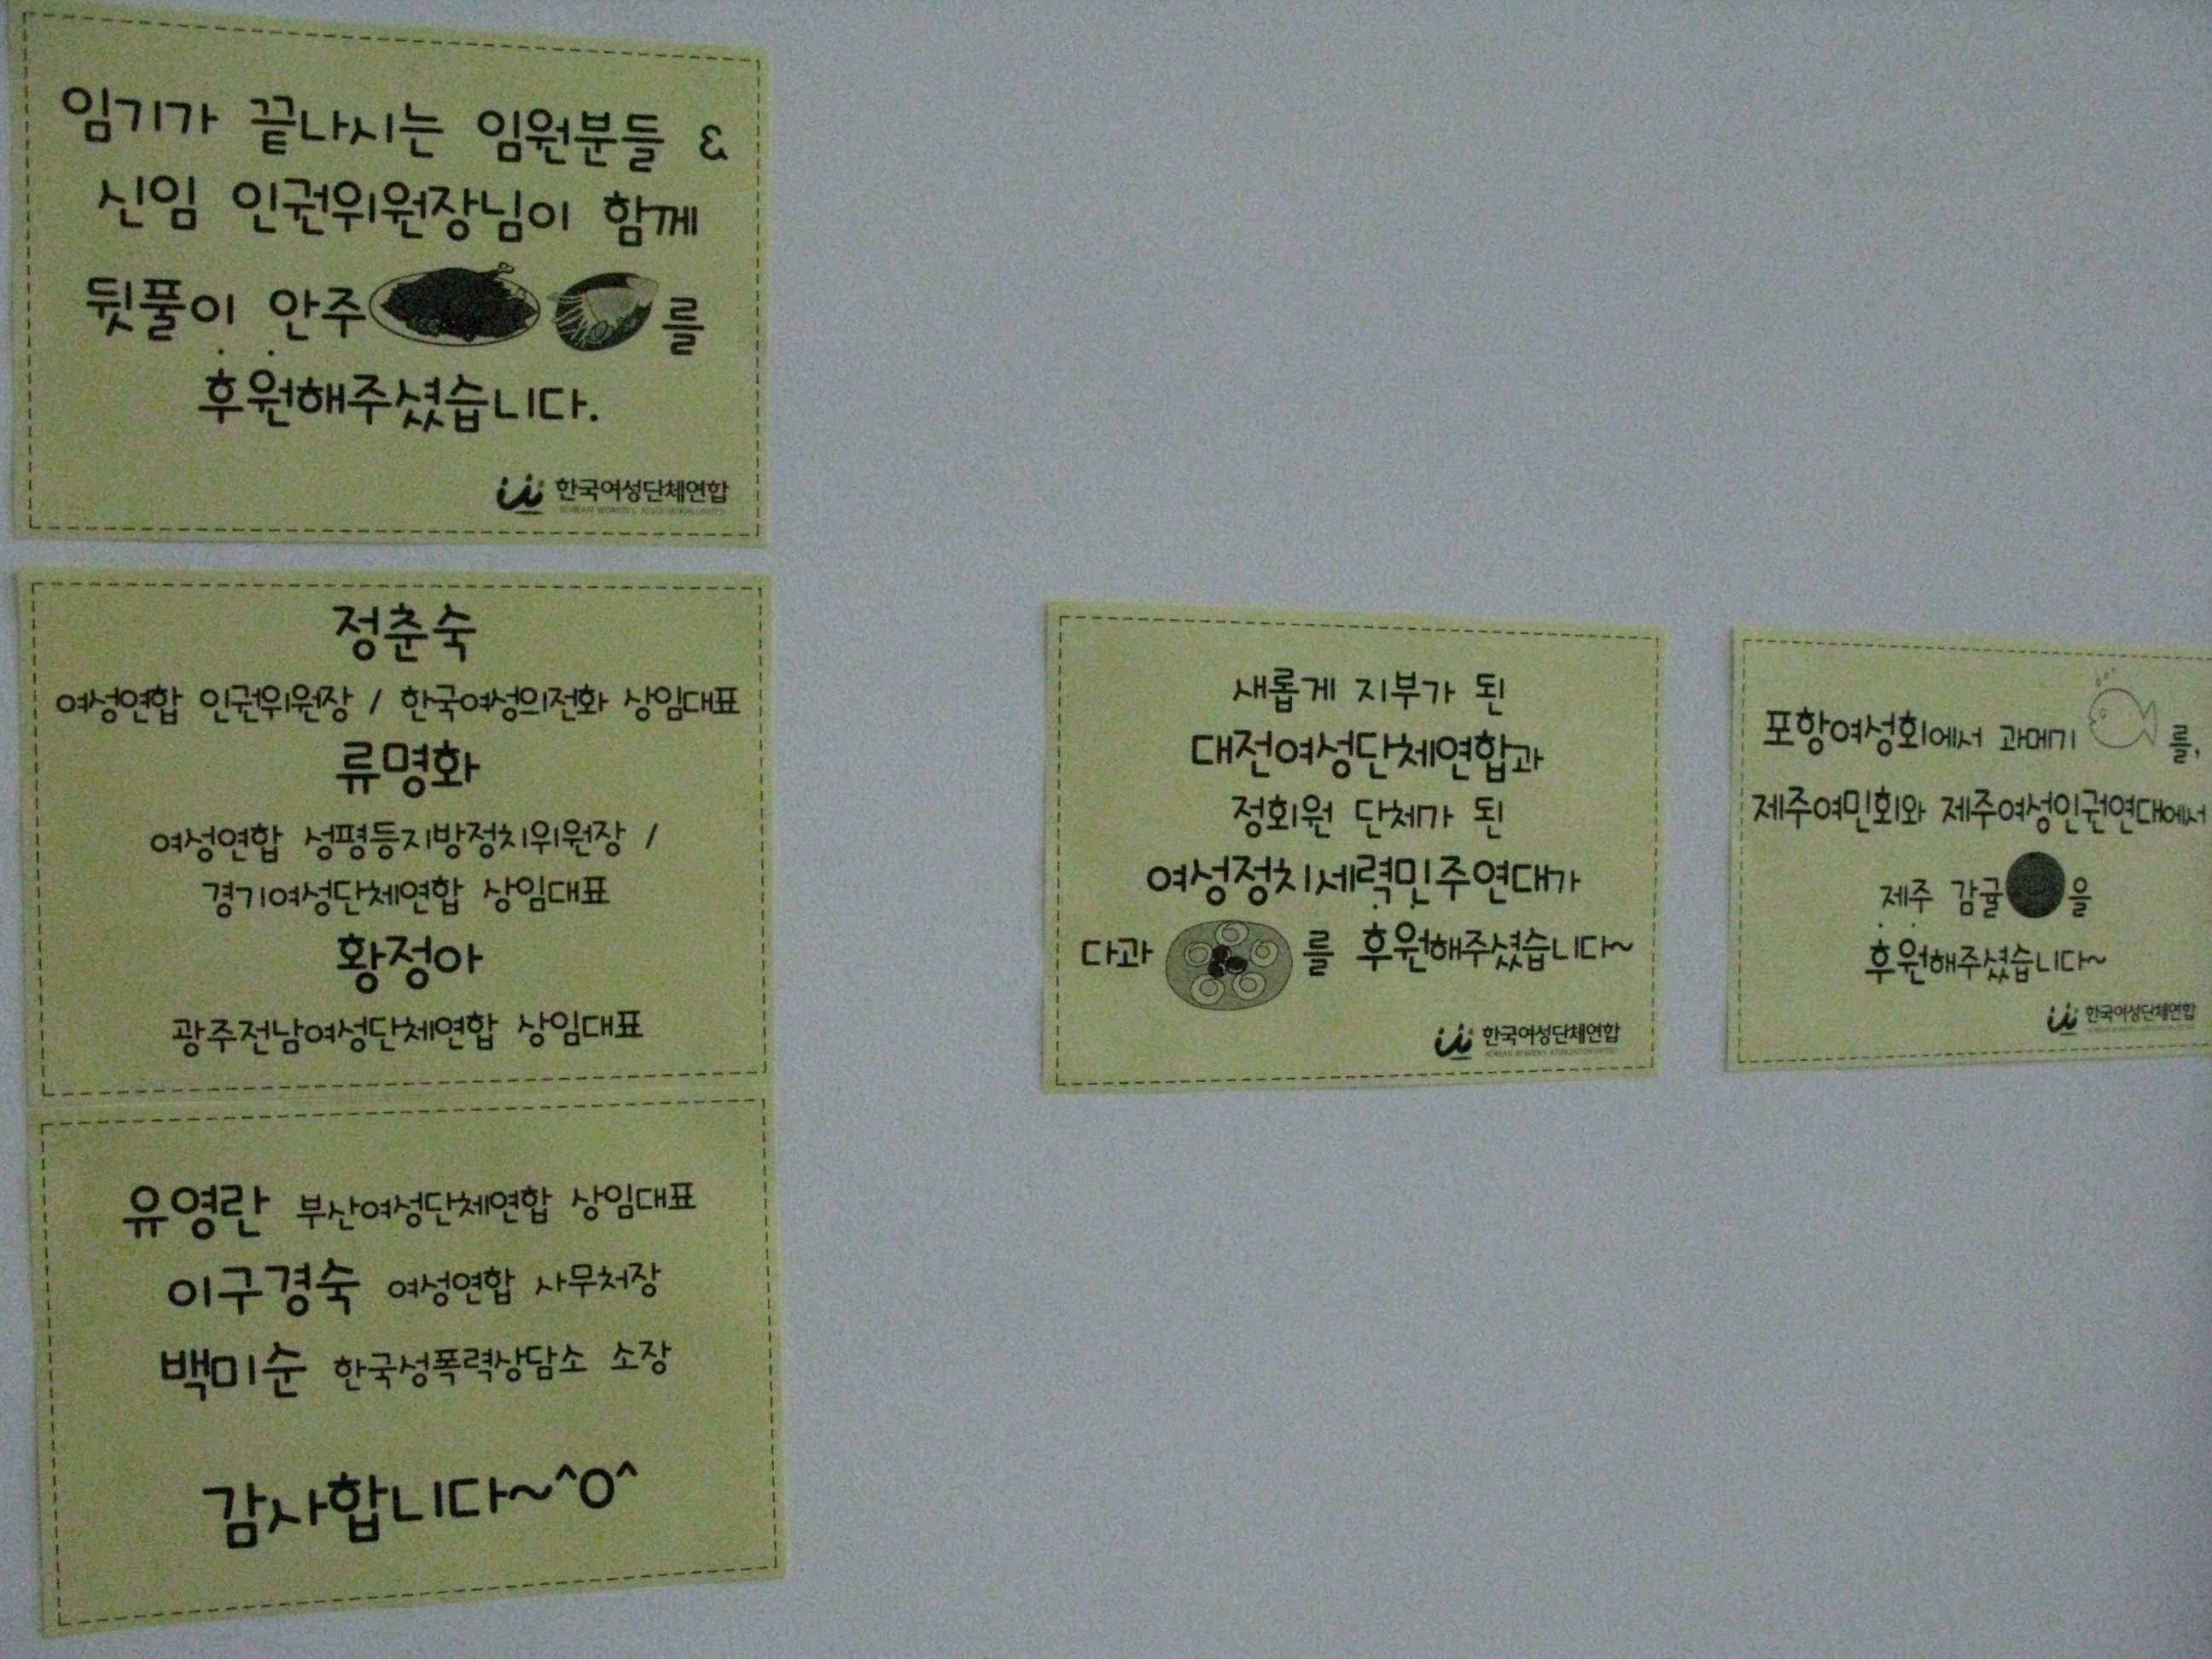 임기가 끝나시는 임원분들 &
신임 인권위원장님이 함께
뒷풀이 안주 를
후원해주셨습니다.
한국여성단체연합
KOREAN WOMEN'S ASSOCIATION UNITED
정춘숙
여성연합 인권위원장 / 한국여성의전화 상임대표
류명화
여성연합 성평등지방정치위원장 /
경기여성단체연합 상임대표
황정아
광주전남여성단체연합 상임대표
유영란 부산여성단체연합 상임대표
이구경숙 여성연합 사무처장
백미순 한국성폭력상담소 소장
감사합니다~^0^
새롭게 지부가 된
대전여성단체연합과
정회원 단체가 된
여성정치세력민주연대가
다과 를 후원해주셨습니다~
한국여성단체연합
KOREAN WOMEN'S ASSOCIATION UNITED
포항여성회에서 과메기 를,
제주여민회와 제주여성인권연대에서
제주 감귤 을
후원해주셨습니다~
한국여성단체연합